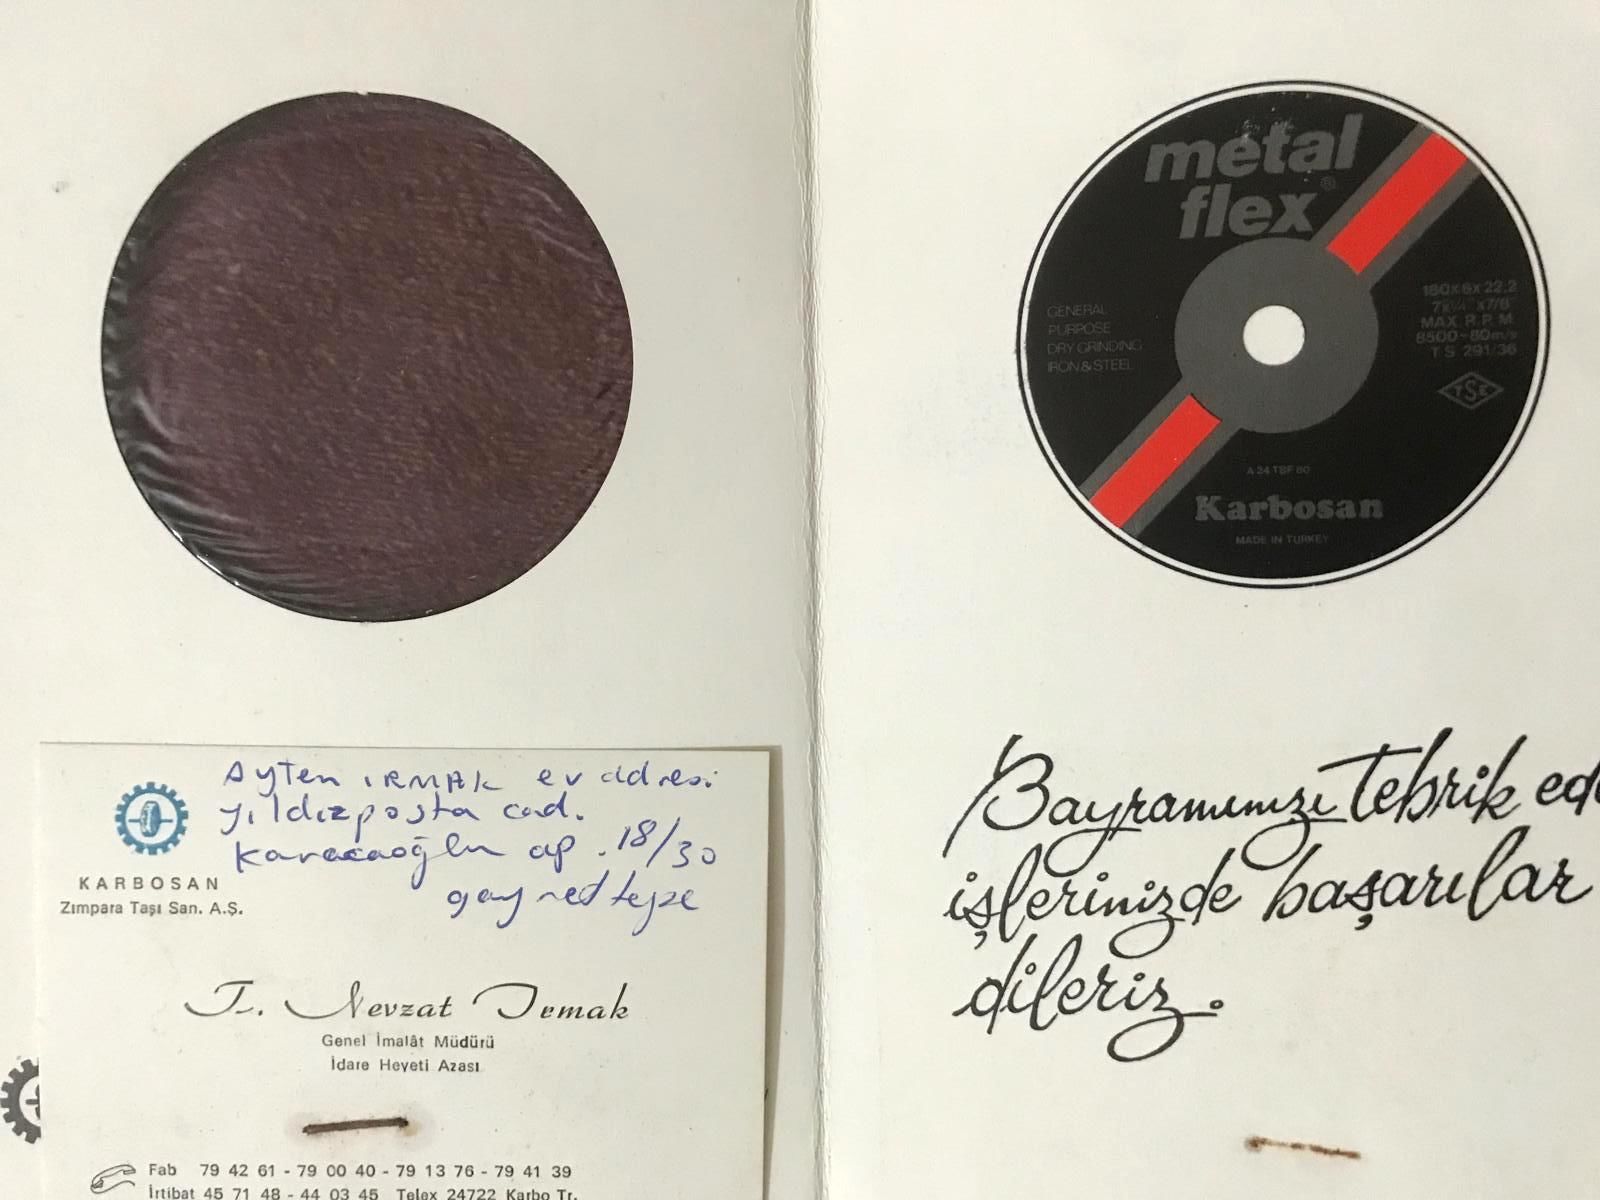 Ayten IRMAK ev adresi
yıldızposta cad.
Karacaoğlu ap. 18/30
gayrettepe
KARBOSAN
Zımpara Taşı San. A.Ş.
T. Nevzat Irmak
Genel İmalât Müdürü
İdare Heyeti Azası
Fab 79 42 61 - 79 00 40 - 79 13 76 - 79 41 39
İrtibat 45 71 48 - 44 03 45 Telex 24722 Karbo Tr.
metal
flex®
GENERAL
PURPOSE
DRY GRINDING
IRON & STEEL
180x6x22.2
MAX. R.P.M.
8500-80m/s
T S 291/36
TSE
A 24 TBF 80
Karbosan
MADE IN TURKEY
Bayramınızı tebrik ede
işlerinizde başarılar
dileriz.